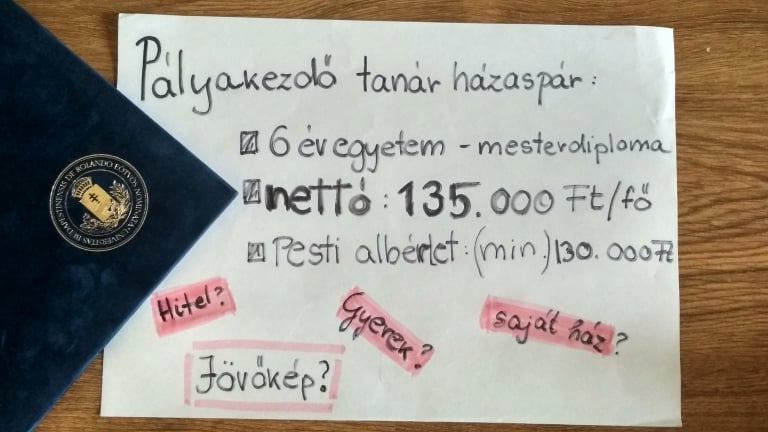 Pályakezdő tanár házaspár:
6 év egyetem - mesterdiploma
nettó: 135.000 Ft/fő
Pesti albérlet: (min.) 130.000 Ft
Hitel?
Gyerek?
saját ház?
Jövőkép?